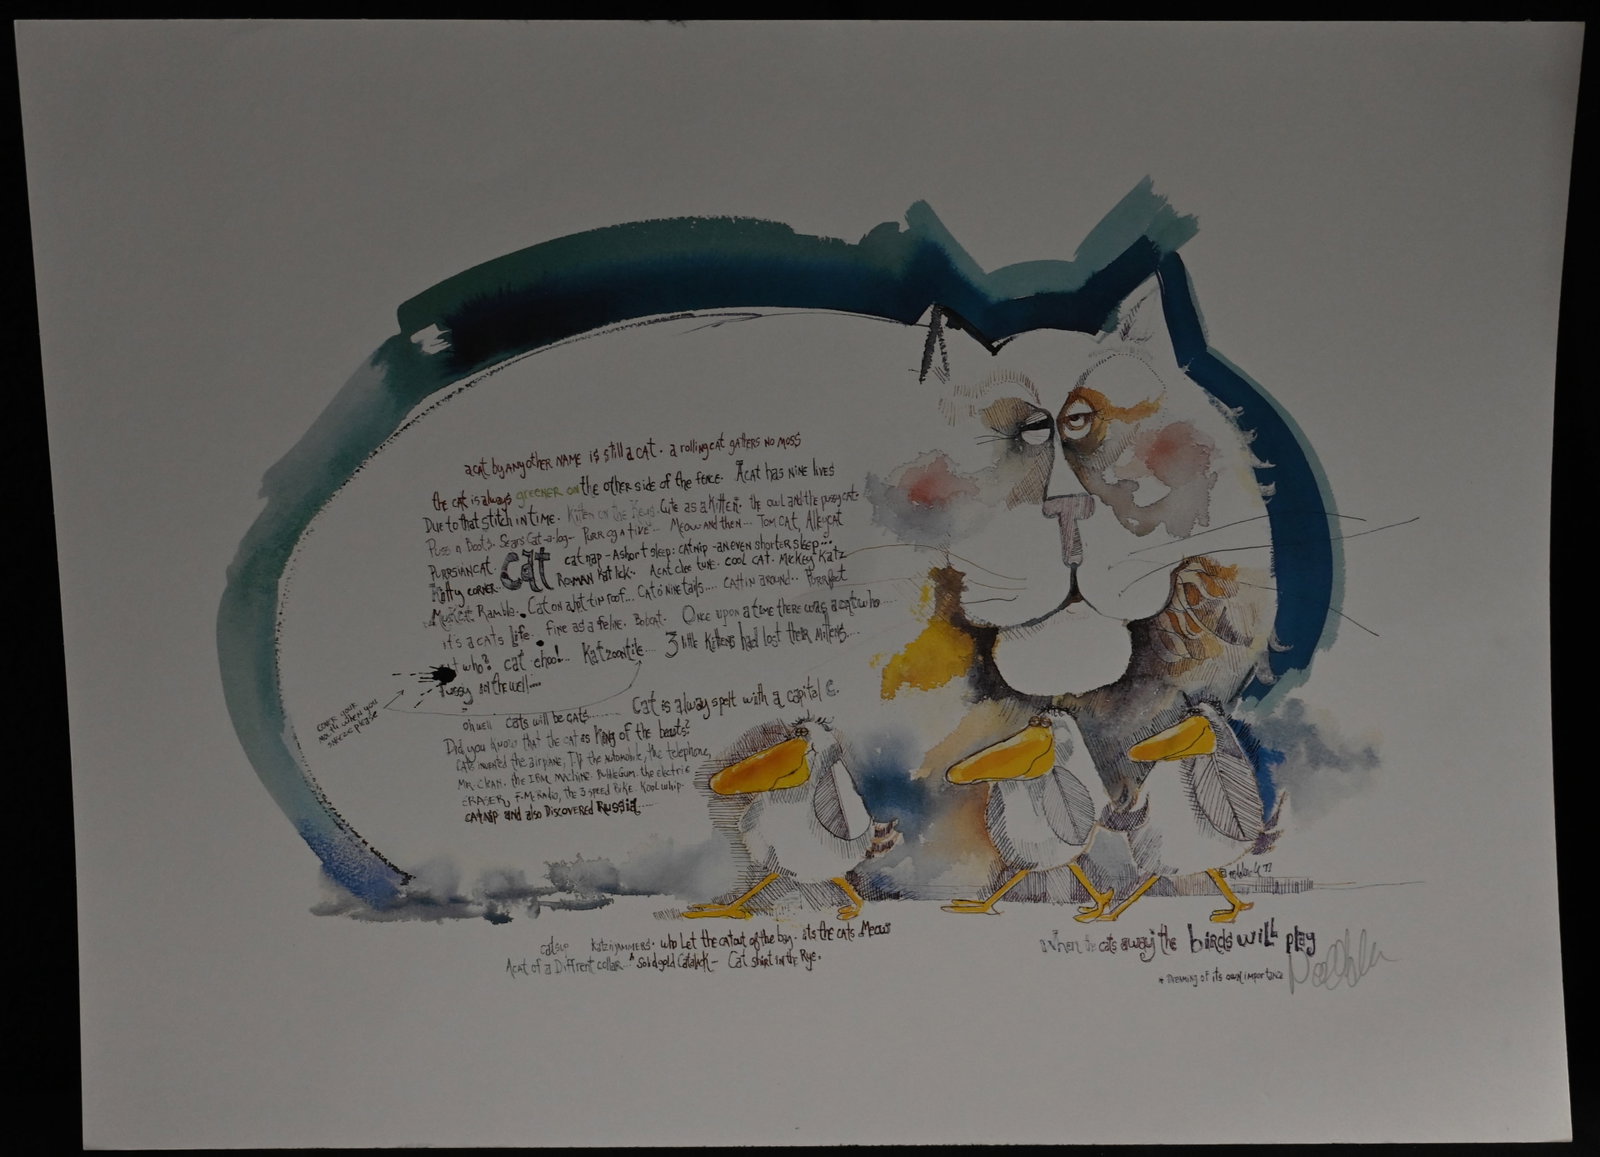 a cat by any other name is still a cat. a rolling cat gathers no moss
the cat is always greener on the other side of the fence. A cat has nine lives
Due to that stitch in time. Kitten on the Keys. Cute as a Kitten. the owl and the pussycat.
Puss n Boots. Sears Cat-a-log- Purrogative... Meow and then... Tom cat, Alleycat
Purrsiancat. cat cat nap - A short sleep: catnip - an even shorter sleep...
Kitty corner. Roman Katlick. A cat chee tune. cool cat. Mickey Katz
Muskcat Ramble. Cat on a hot tin roof... Cat o nine tails.... Cattin around.. Purrfect
it's a cats life. Fine as a feline. Bobcat. Once upon a time there was a cat who...
who? cat choo!... Katzoontite.... 3 little Kittens had lost their mittens....
Pussy in the well....
cover your mouth when you sneeze please
Cat is always spelt with a capital C.
oh well cats will be cats.......
Did you know that the cat is King of the beasts?
Cats invented the airplane, T.V. the automobile, the telephone,
Mr. Clean. the IBM machine. Bubblegum. the electric
Eraser, F.M. Radio, the 3 speed Bike. Koolwhip.
catnip and also Discovered Russia.....
catsup Katzinjammers. who Let the cat out of the bag. its the cats Meow
A cat of a Diffrent collar. Solid gold Catalick - Cat shirt in the Rye.
when the cats away the birds will play
* Dreaming of its own importance